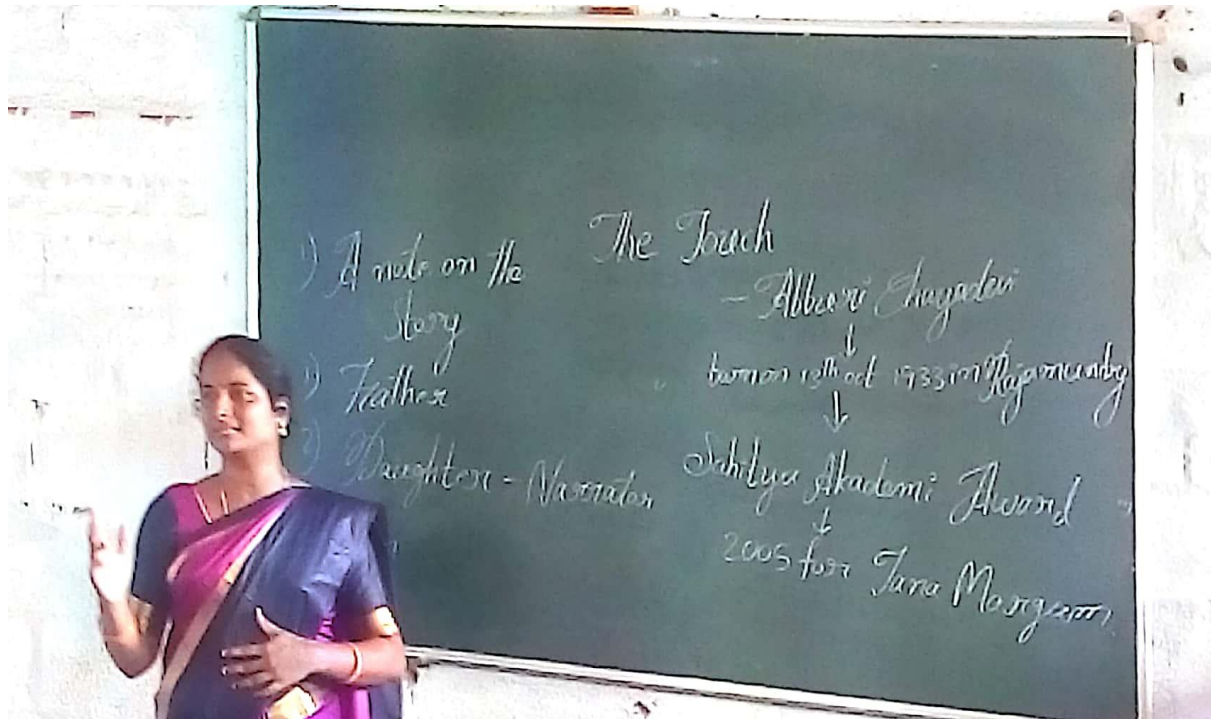 The Touch
- Abburi Chayadevi
↓
born on 13th oct 1933 in Rajamundry
↓
Sahitya Akademi Award
↓
2005 for Tana Margam
1) A note on the
Story
) Father
) Daughter - Narrator